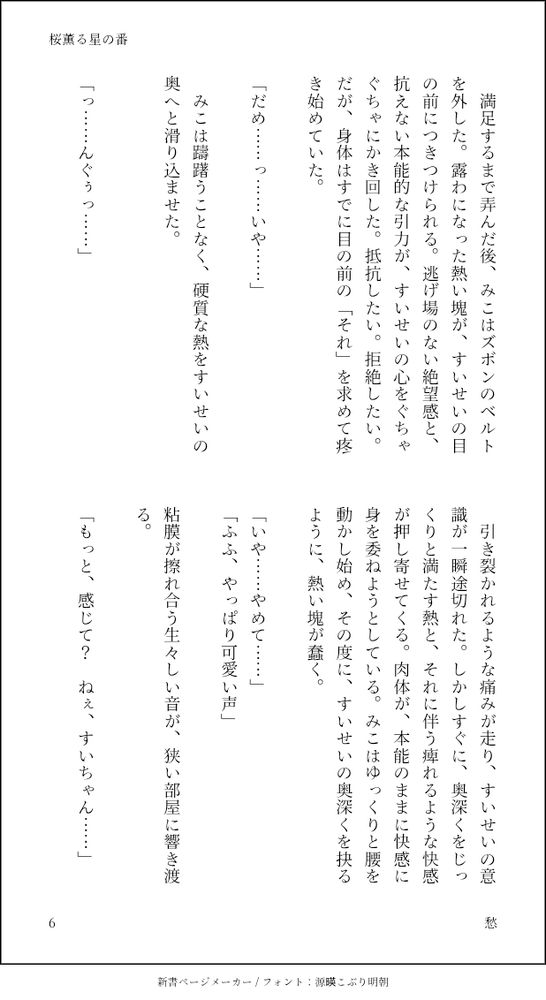 桜薫る星の番
　満足するまで弄んだ後、みこはズボンのベルト
を外した。露わになった熱い塊が、すいせいの目
の前につきつけられる。逃げ場のない絶望感と、
抗えない本能的な引力が、すいせいの心をぐちゃ
ぐちゃにかき回した。抵抗したい。拒絶したい。
だが、身体はすでに目の前の「それ」を求めて疼
き始めていた。
「だめ……っ……いや……」
　みこは躊躇うことなく、硬質な熱をすいせいの
奥へと滑り込ませた。
「っ……んぐぅっ……」
　引き裂かれるような痛みが走り、すいせいの意
識が一瞬途切れた。しかしすぐに、奥深くをじっ
くりと満たす熱と、それに伴う痺れるような快感
が押し寄せてくる。肉体が、本能のままに快感に
身を委ねようとしている。みこはゆっくりと腰を
動かし始め、その度に、すいせいの奥深くを抉る
ように、熱い塊が蠢く。
「いや……やめて……」
「ふふ、やっぱり可愛い声」
粘膜が擦れ合う生々しい音が、狭い部屋に響き渡
る。
「もっと、感じて？　ねぇ、すいちゃん……」
愁
6
新書ページメーカー / フォント：源暎こぶり明朝